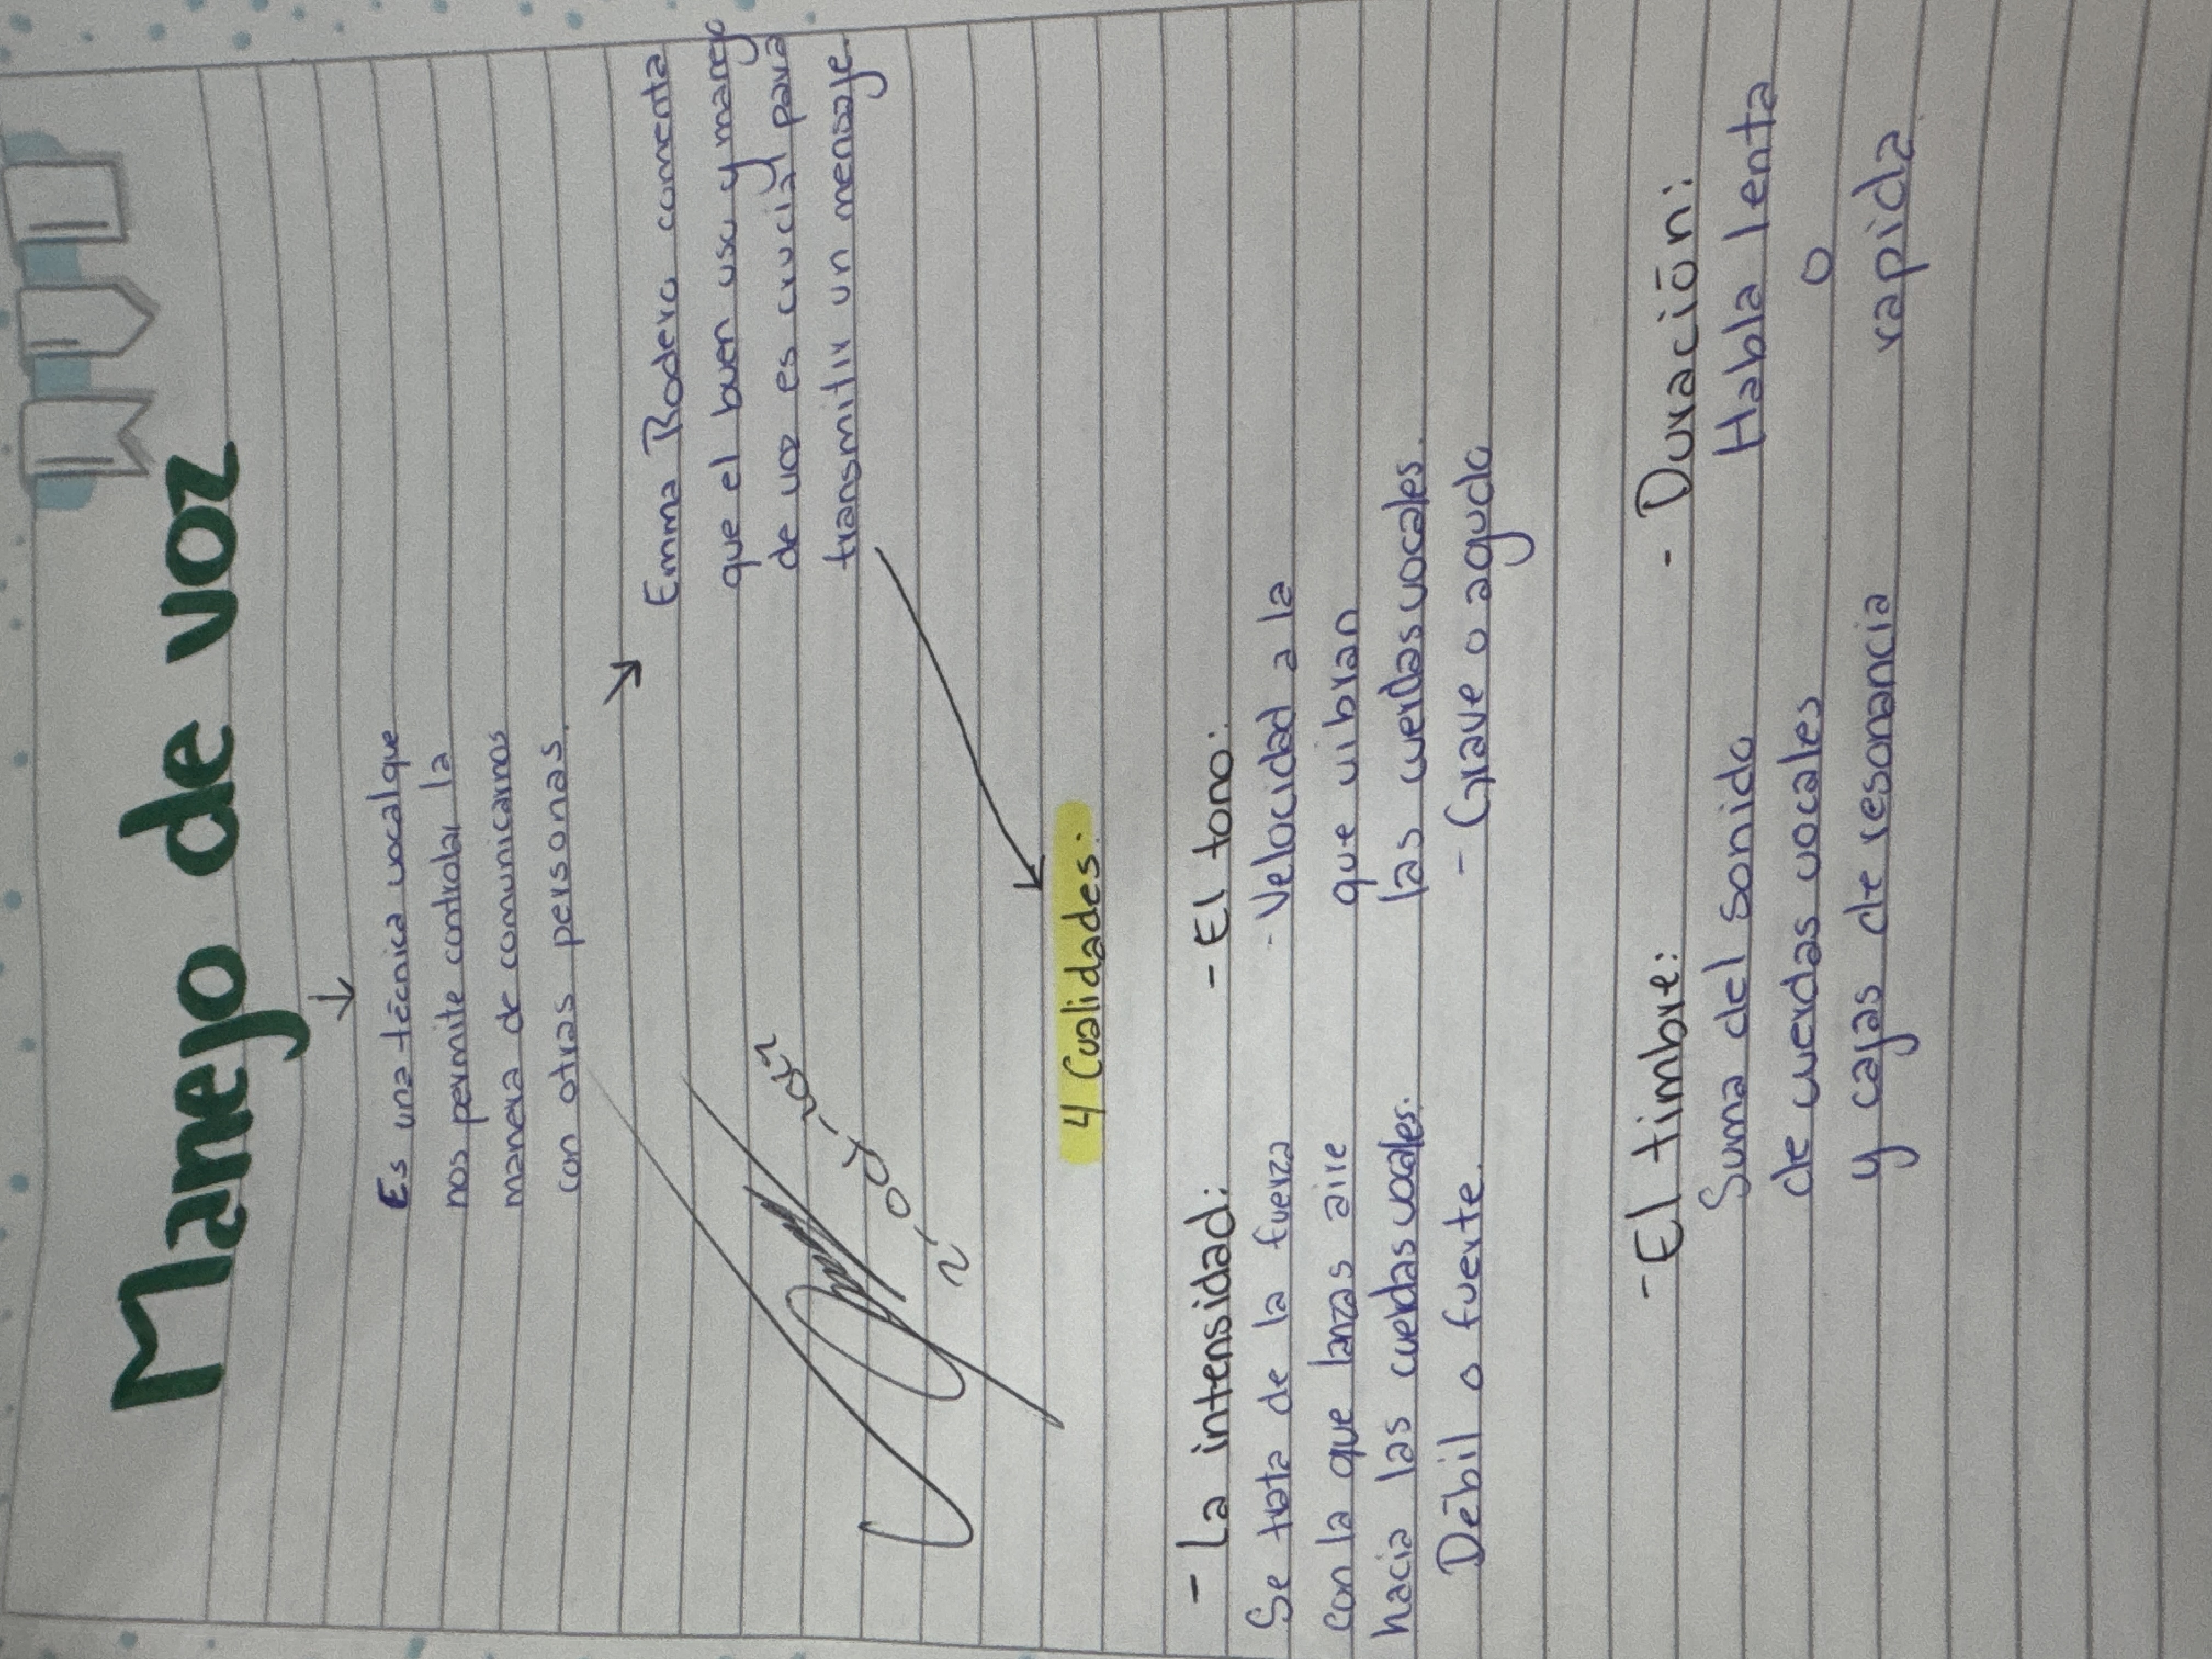 Manejo de voz
Es una técnica vocal que
nos permite controlar la
manera de comunicarnos
con otras personas.
Emma Rodero comenta
que el buen uso y manejo
de voz es crucial para
transmitir un mensaje.
4 Cualidades:
- La intensidad:
Se trata de la fuerza
con la que lanzas aire
hacia las cuerdas vocales.
Débil o fuerte.
- El tono:
- Velocidad a la
que vibran
las cuerdas vocales.
- Grave o agudo
- El timbre:
Suma del sonido
de cuerdas vocales
y cajas de resonancia
- Duración:
Habla lenta
o
rapida